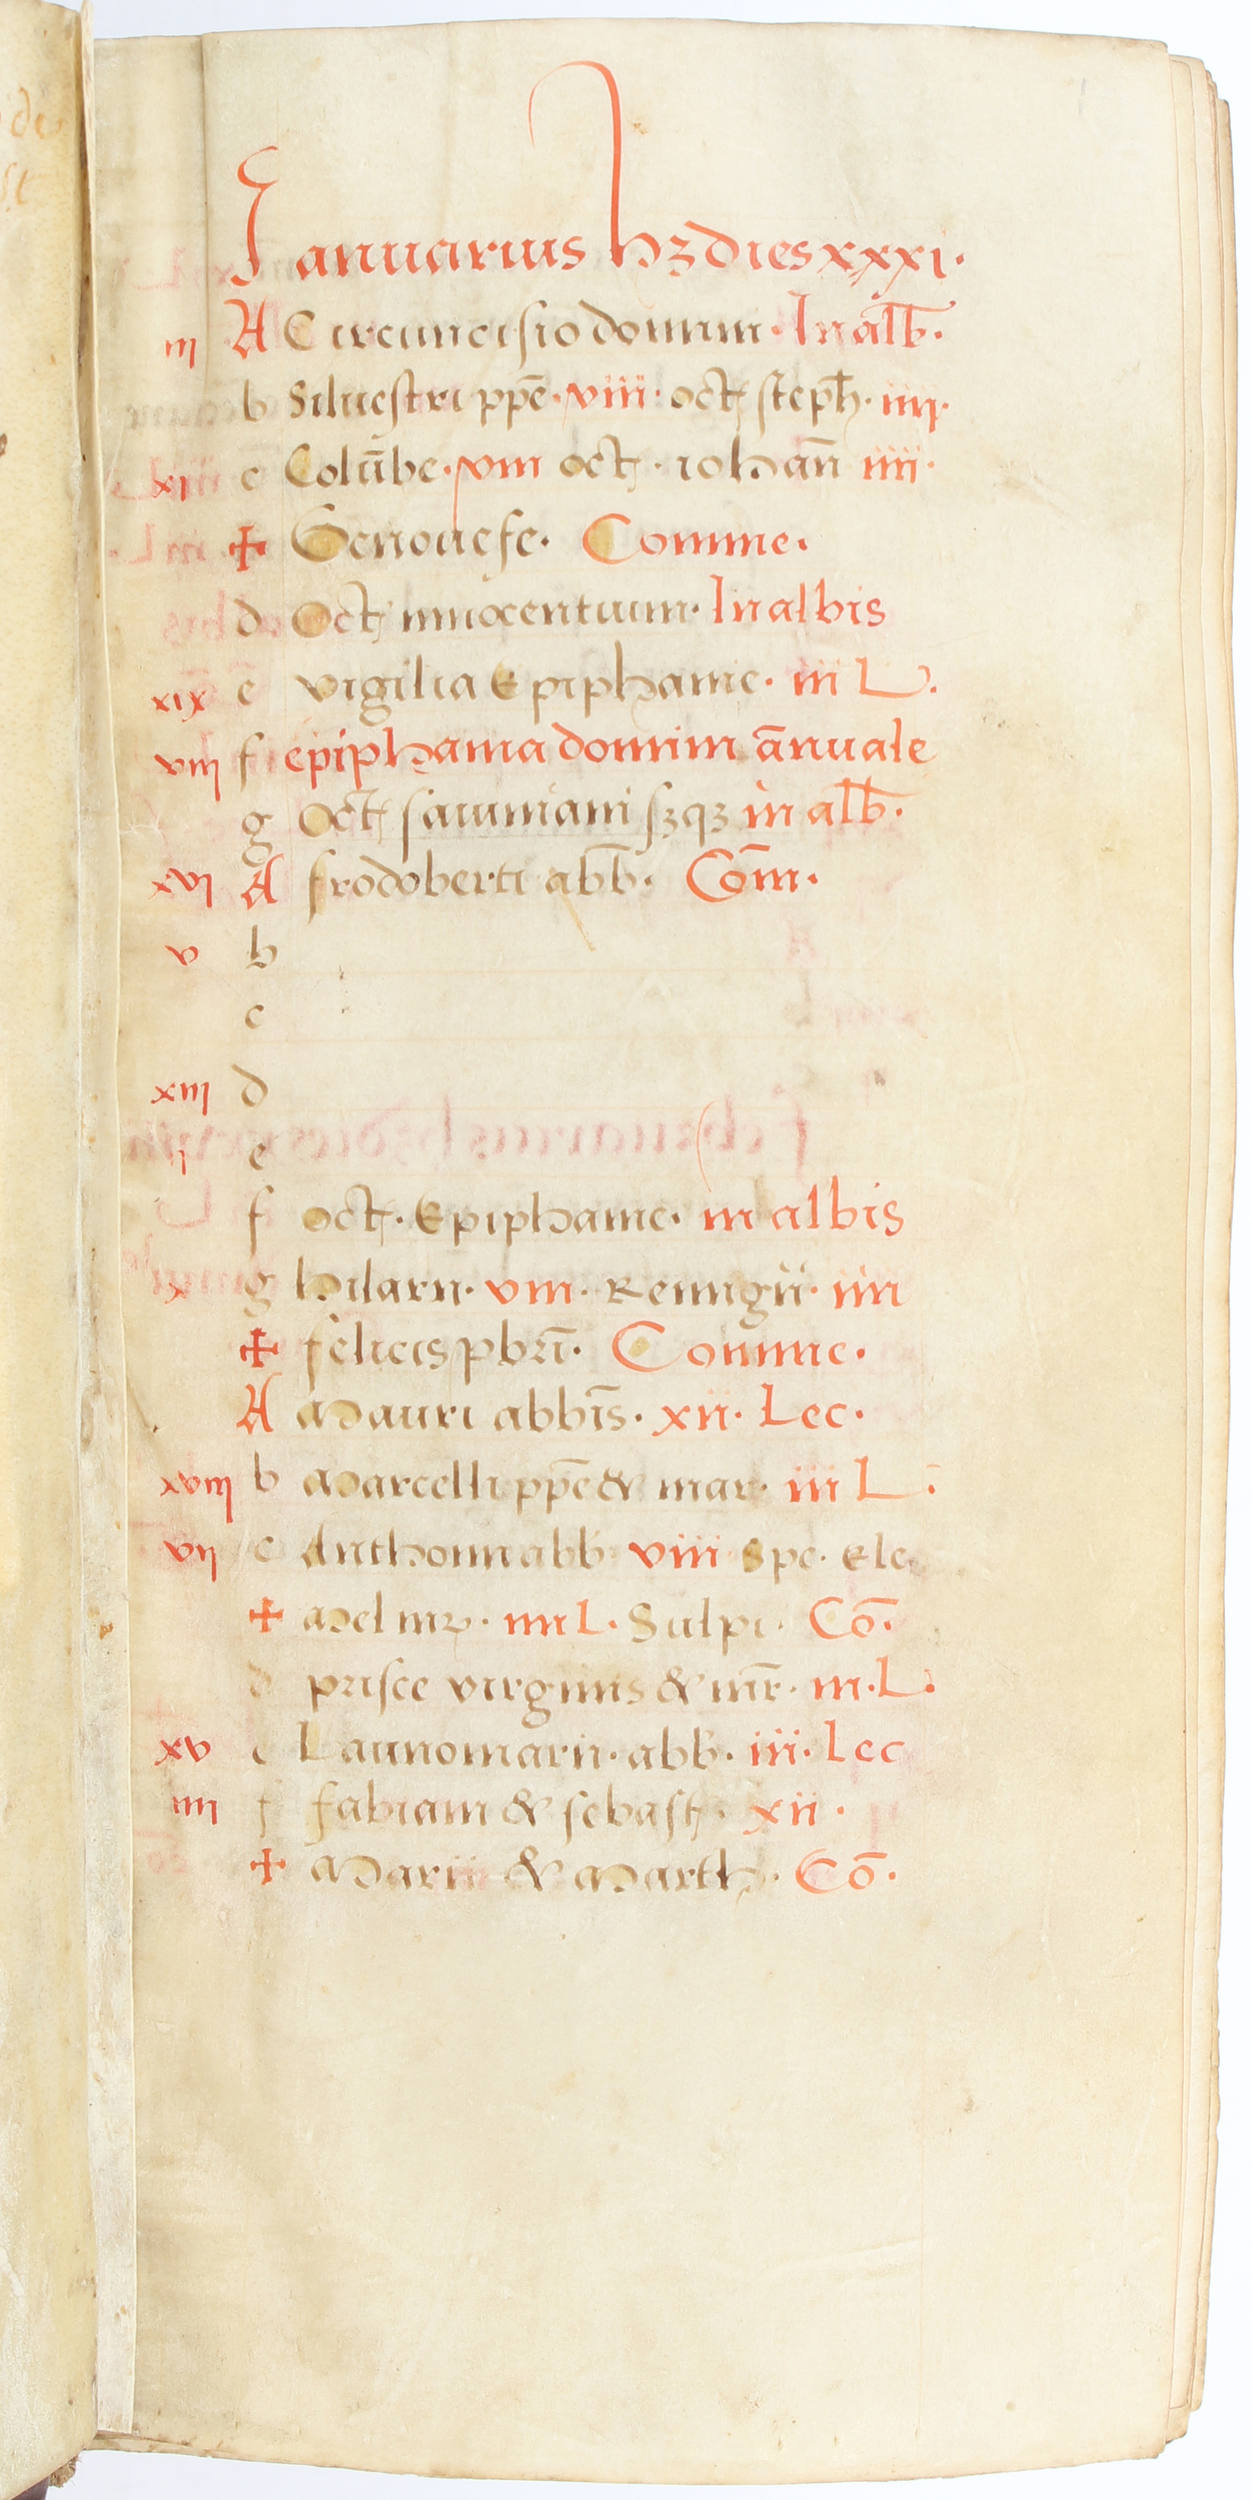 Ianuarius hꝫ dies xxxi.
iii A Circuncisio domini. In alb̄.
b Siluestri pp̄e. viii. oct̄ steph̄. iiii.
xi c Colūbe. viii oct̄. iohan̄ iiii.
✝ Genouefe. Comme.
d Oct̄ innocentium. In albis
xix e vigilia Epiphanie. iii L.
viii f epiphania domini ānuale
g Oct̄ sauiniani sꝫqꝫ in alb̄.
xvi A frodoberti abb̄. Com̄.
v b
c
xiii d
ii e
f oct̄. Epiphanie. in albis
x g hilarii. viii. Remigii. iiii
✝ felicis pbr̄i. Comme.
A Mauri abbīs. xii. Lec.
xviii b Marcelli pp̄e & mar. iii L.
vii c Anthonii abb viii Spe. Ele
✝ Mel mr̄. iiii L. Sulpi. Cō.
d prisce virginis & mr̄. iii. L.
xv e Launomarii. abb̄. iii. Lec
iiii f fabiani & sebast̄. xii.
✝ Marii & Marth̄. Cō.